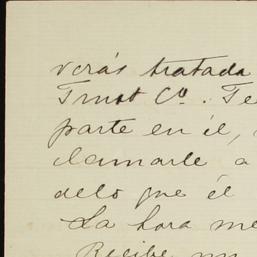 verás tratada
Trust Co. Te
parte en él,
llamarle a
delo que él
La hora me
Recibe un